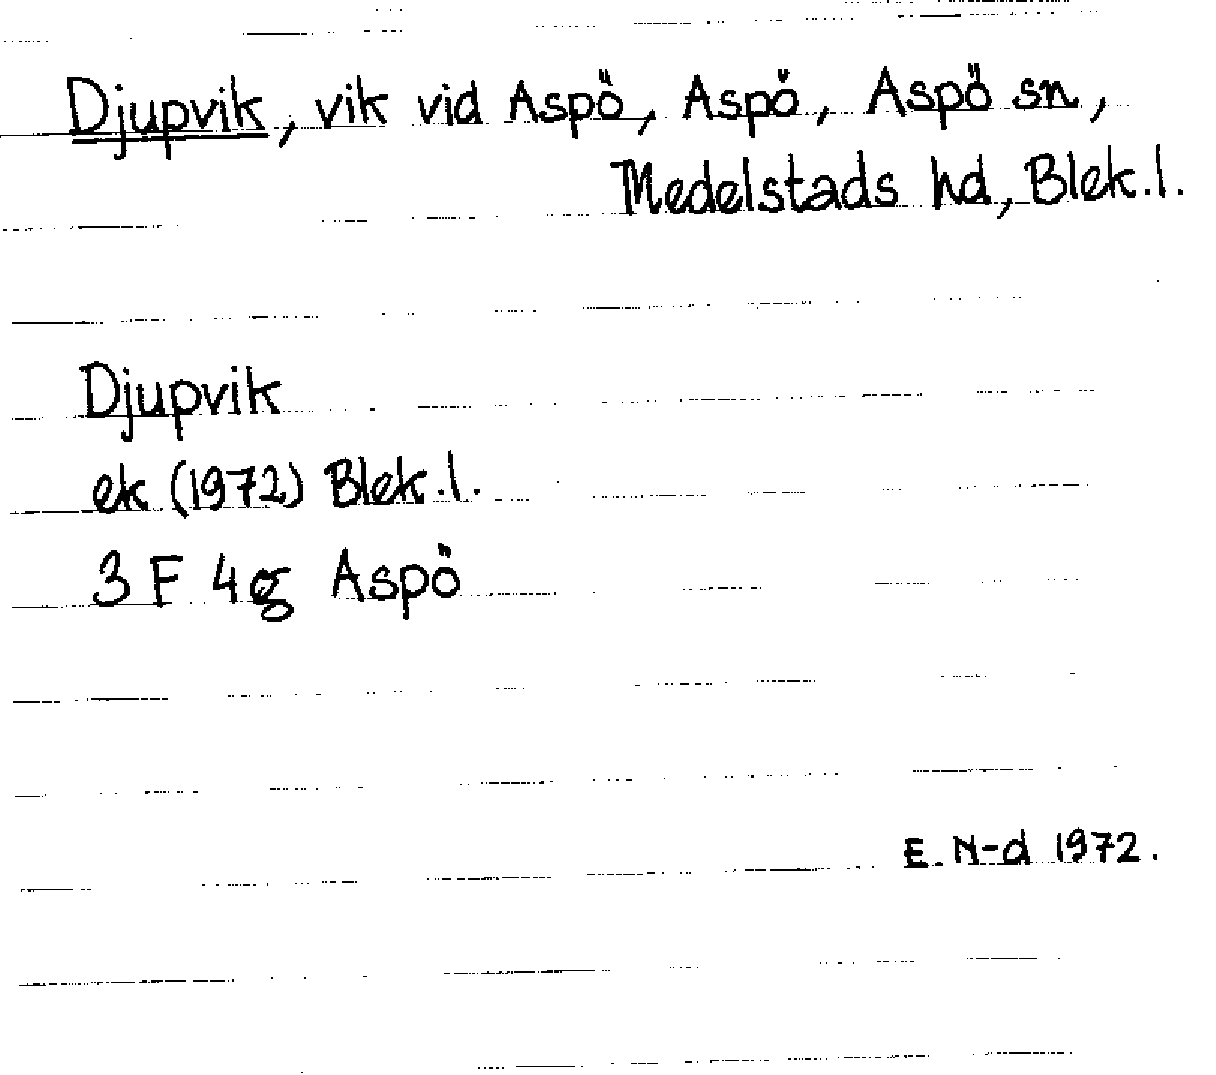 Djupvik, vik vid Aspö, Aspö, Aspö sn,
Medelstads hd, Blek. l.
Djupvik
ek (1972) Blek. l.
3 F 4 g Aspö
E. N-d 1972.